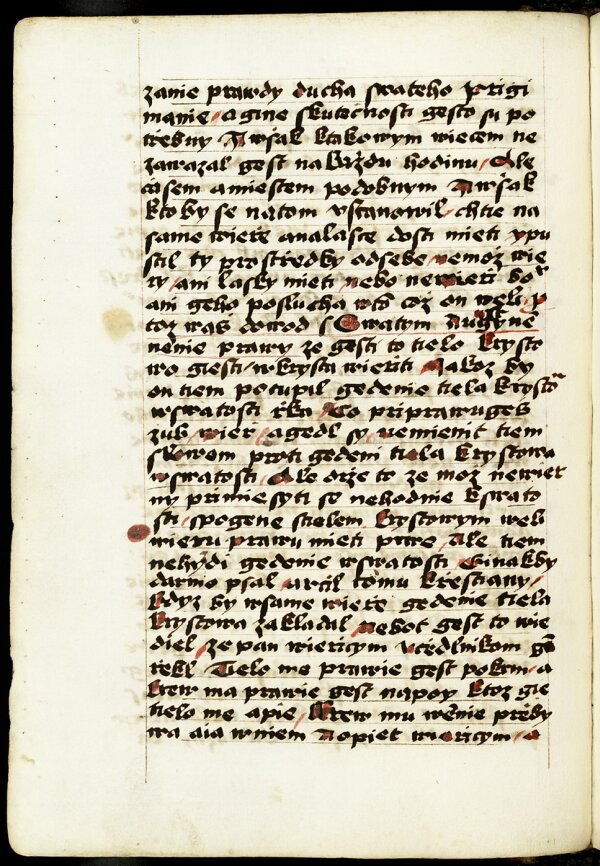 zanie prawdy ducha swateho prigi
manie agine skutecnosti gesto su po
trebny A wssak ktakowym wiecem ne
zawazal gest na kazdu hodinu Ale
casem a miestem podobnym A wssak
kto by se natom vstanowil chtie na
same wiere a na lasce dosti mieti ypu
stil ty prostredky odsebe nemoz wie
ry ani lasky mieti nebo newieri
ani geho poslucha coz on weli
toz was dowod s Swatym
nenie prawy ze gesti to tielo krysto
wo giesti w krysta wieriti Jakoz by
on tiem potupil gedenie tiela
wswatosti rka Co priprawuges
zub wier a gedl sy nemienit tiem
slowem proti gedeni tiela krystowa
wswatosti Ale drze to ze moz newier
ny primiesyti se nehodnie kswato
sti spogene stielem krystowym weli
wieru prawu mieti prwe Ale tiem
nehyzdi gedenie wswatosti ginak by
darmo psal krestiany
kdyz by wsame wiere gedenie tiela
krystowa zakladal nebot gest to wie
diel ze pan wiericym vcedlnikom
rekl Tielo me prawie gest pokrm a
krew ma prawie gest napoy ktoz gie
tielo me a pie krew mu wemie preby
wa a ia wniem A opiet wiericym